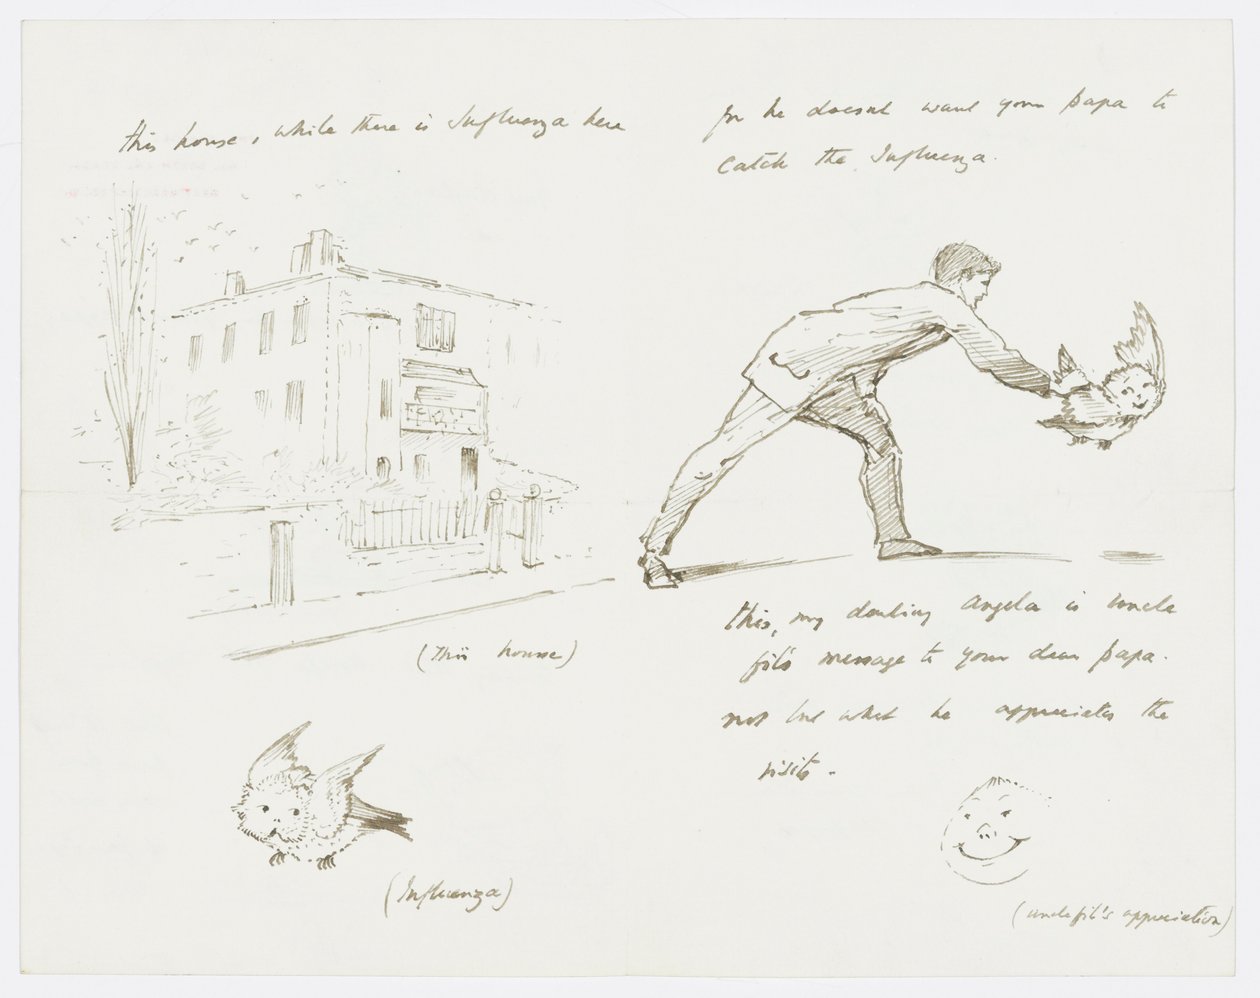 this house, while there is Influenza here
(This house)
(Influenza)
for he doesnt want your papa to
catch the Influenza.
this, my darling Angela is uncle
fil's message to your dear papa.
not but what he appreciates the
visits.
(uncle fil's appreciation)